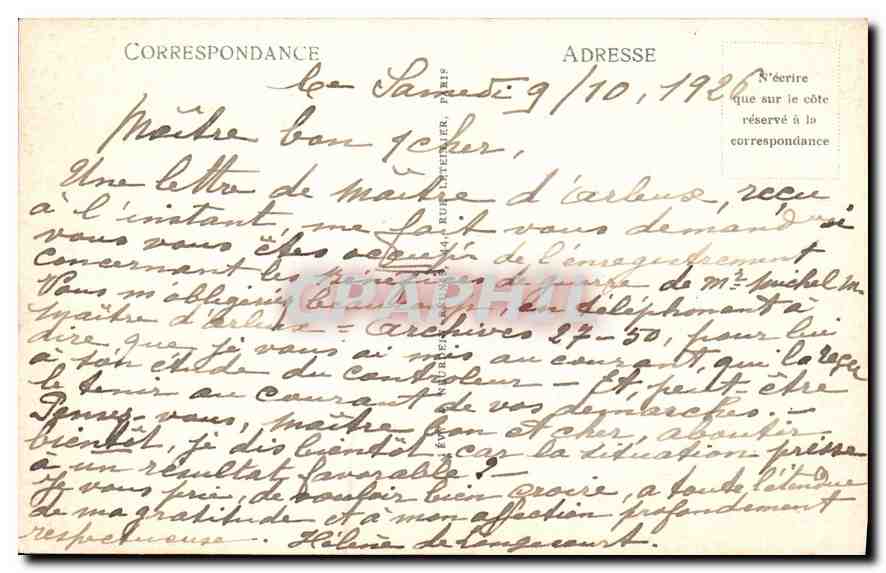 CORRESPONDANCE
ADRESSE
N'écrire
que sur le côte
réservé à la
correspondance
Le Samedi 9/10, 1926
Maître bon & cher,
Une lettre de Maître d'Arleux, reçu
à l'instant, me fait vous demander si
vous vous êtes occupé de l'enregistrement
concernant les Bénéfices de guerre de Mr Michel M-
Vous m'obligeriez beaucoup, en téléphonant à
Maître d'Arleux - Archives 27-50, pour lui
dire que je vous ai mis au courant, qui la reçu
à son étude du controleur - Et, peut-être
le tenir au courant de vos démarches. -
Pensez-vous, Maître bon et cher, aboutir
bientôt, je dis bientôt, car la situation presse
à un résultat favorable? -
Je vous prie, de vouloir bien croire, a toute l'étendue
de ma gratitude et à mon affection profondément
respectueuse. Hélène de Longecourt.
44, RUE LETELLIER, PARIS
CPAPHIL